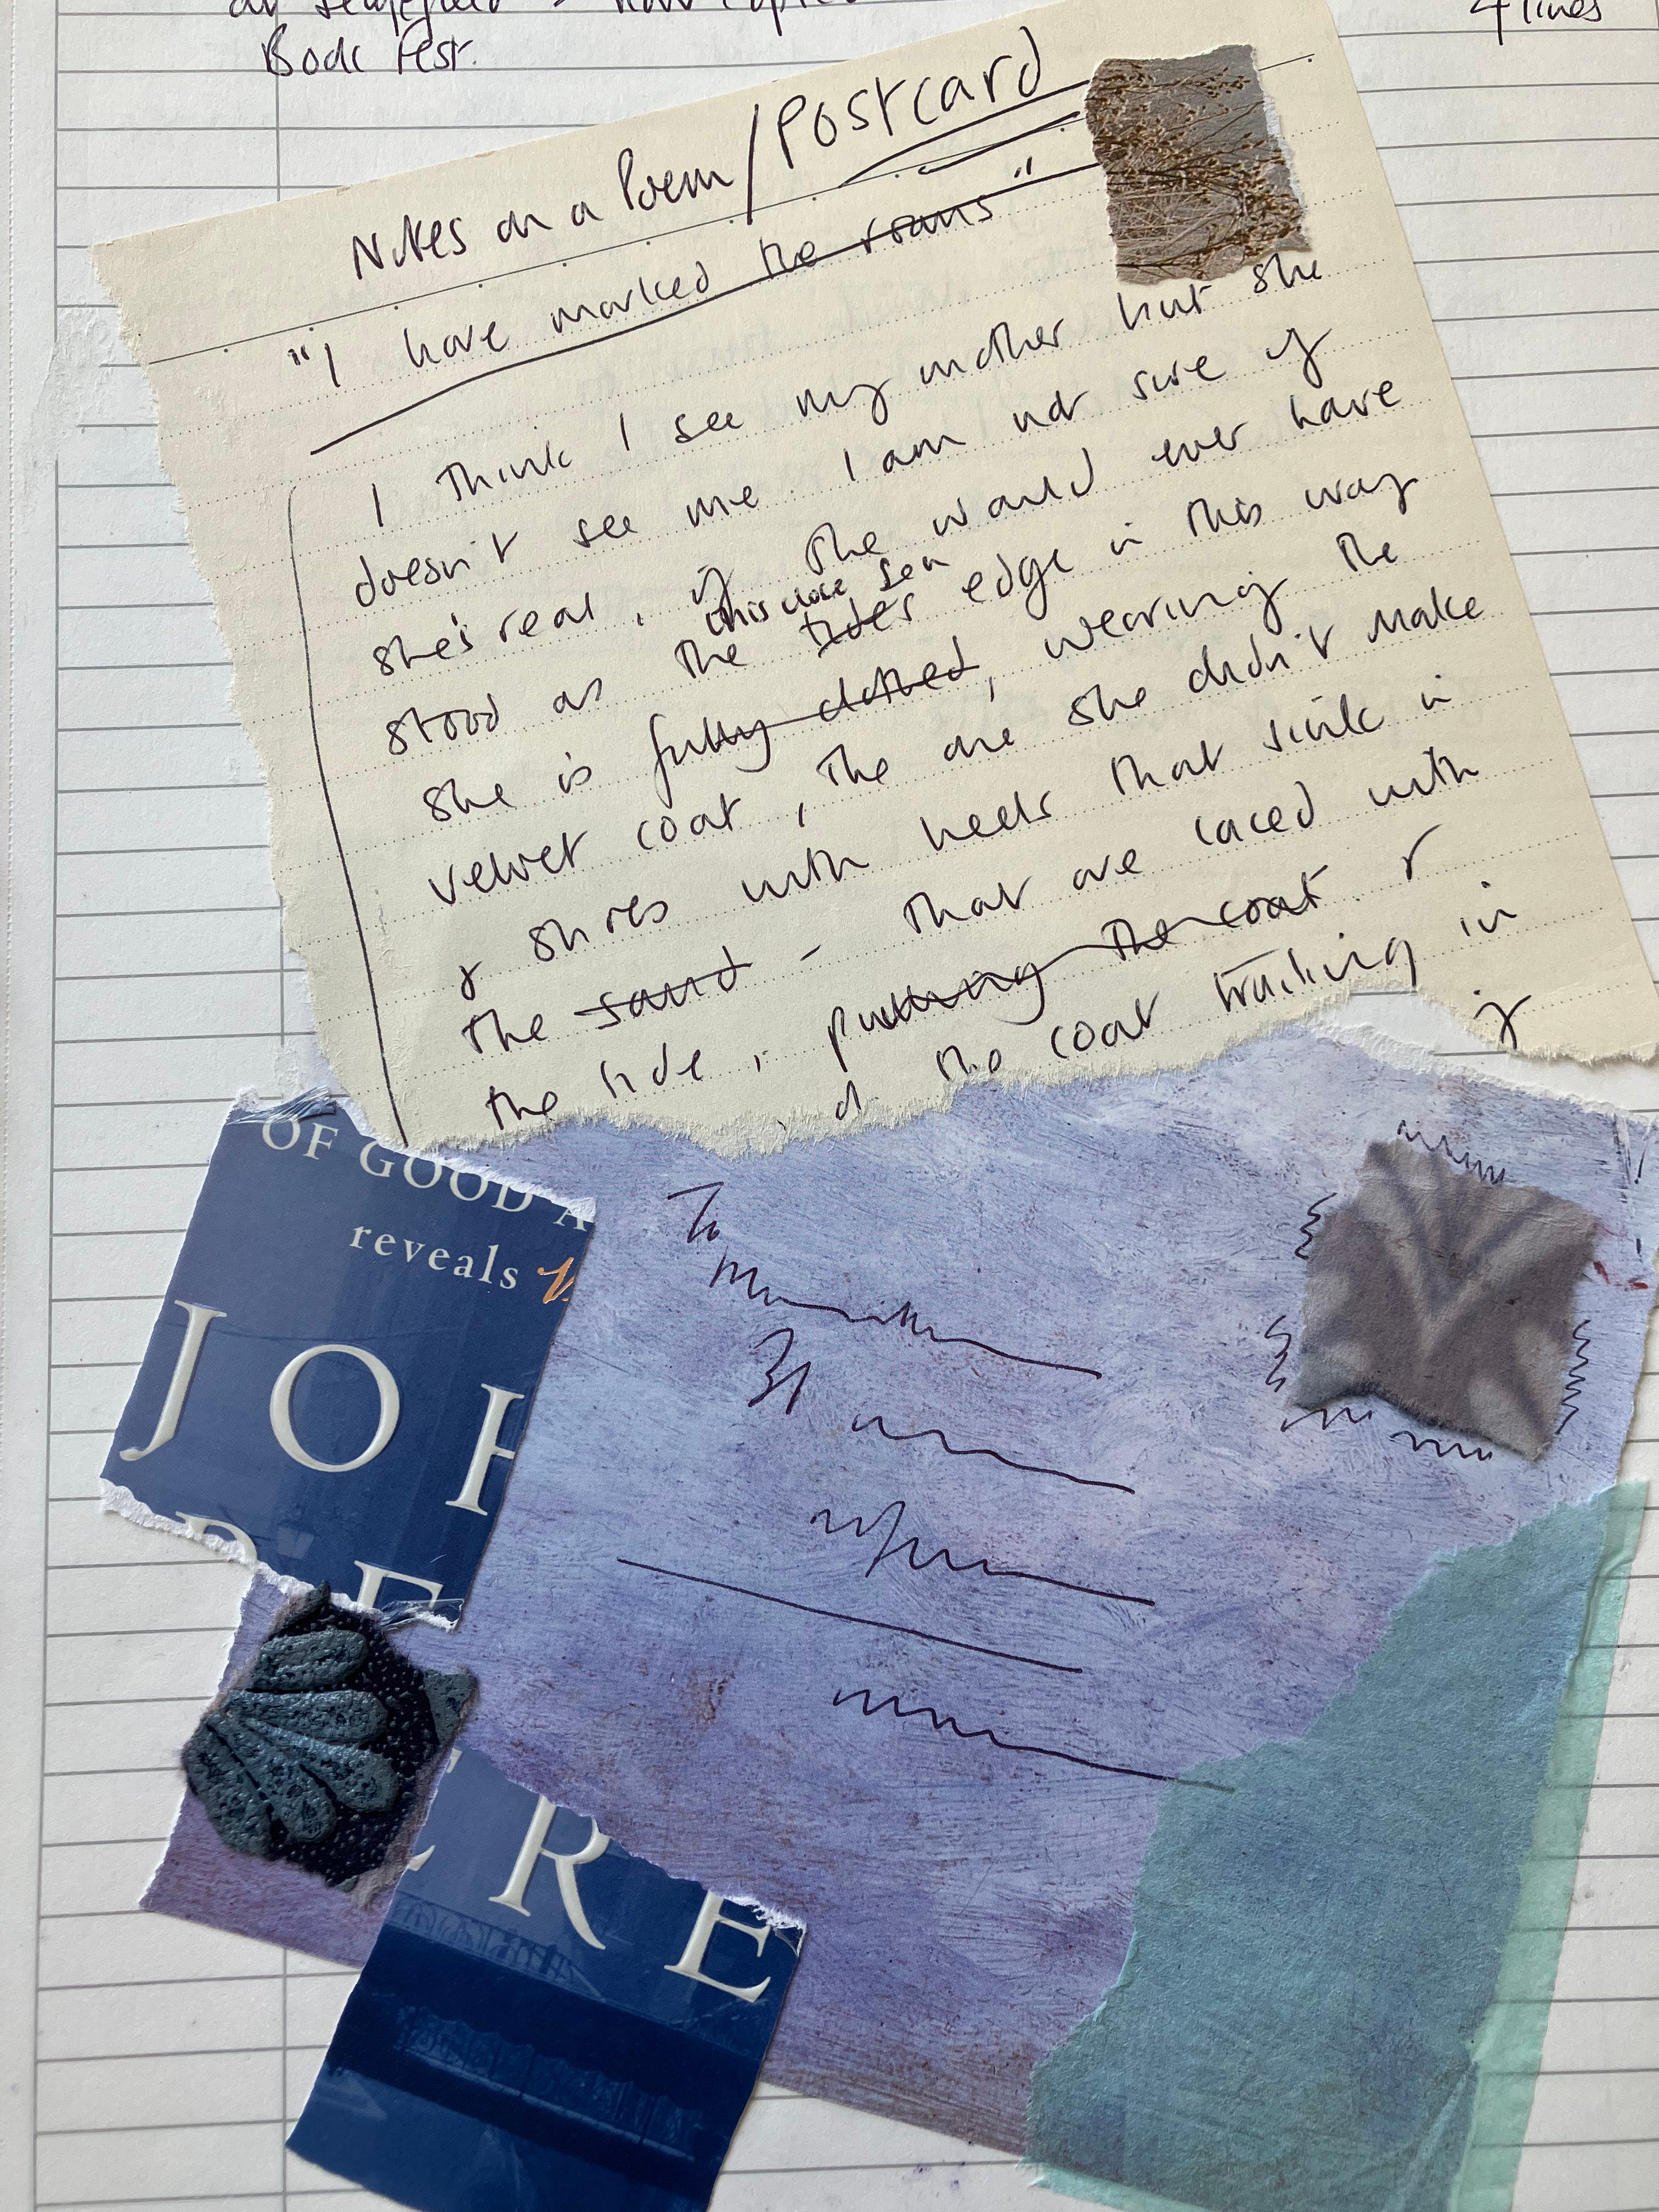 Book Fest.
4 lines
Notes on a Poem/Postcard
"I have marked the rooms"
I think I see my mother but she
doesn't see me. I am not sure if
she's real, if she would ever have
this close sea
stood as the tides edge in this way
she is fully clothed, wearing the
velvet coat, the one she didn't make
& shoes with heels that sink in
the sand - that are laced with
the tide, pulling the coat. &
the coat trailing in
OF GOOD A
reveals
JOH
To
RE
ERE